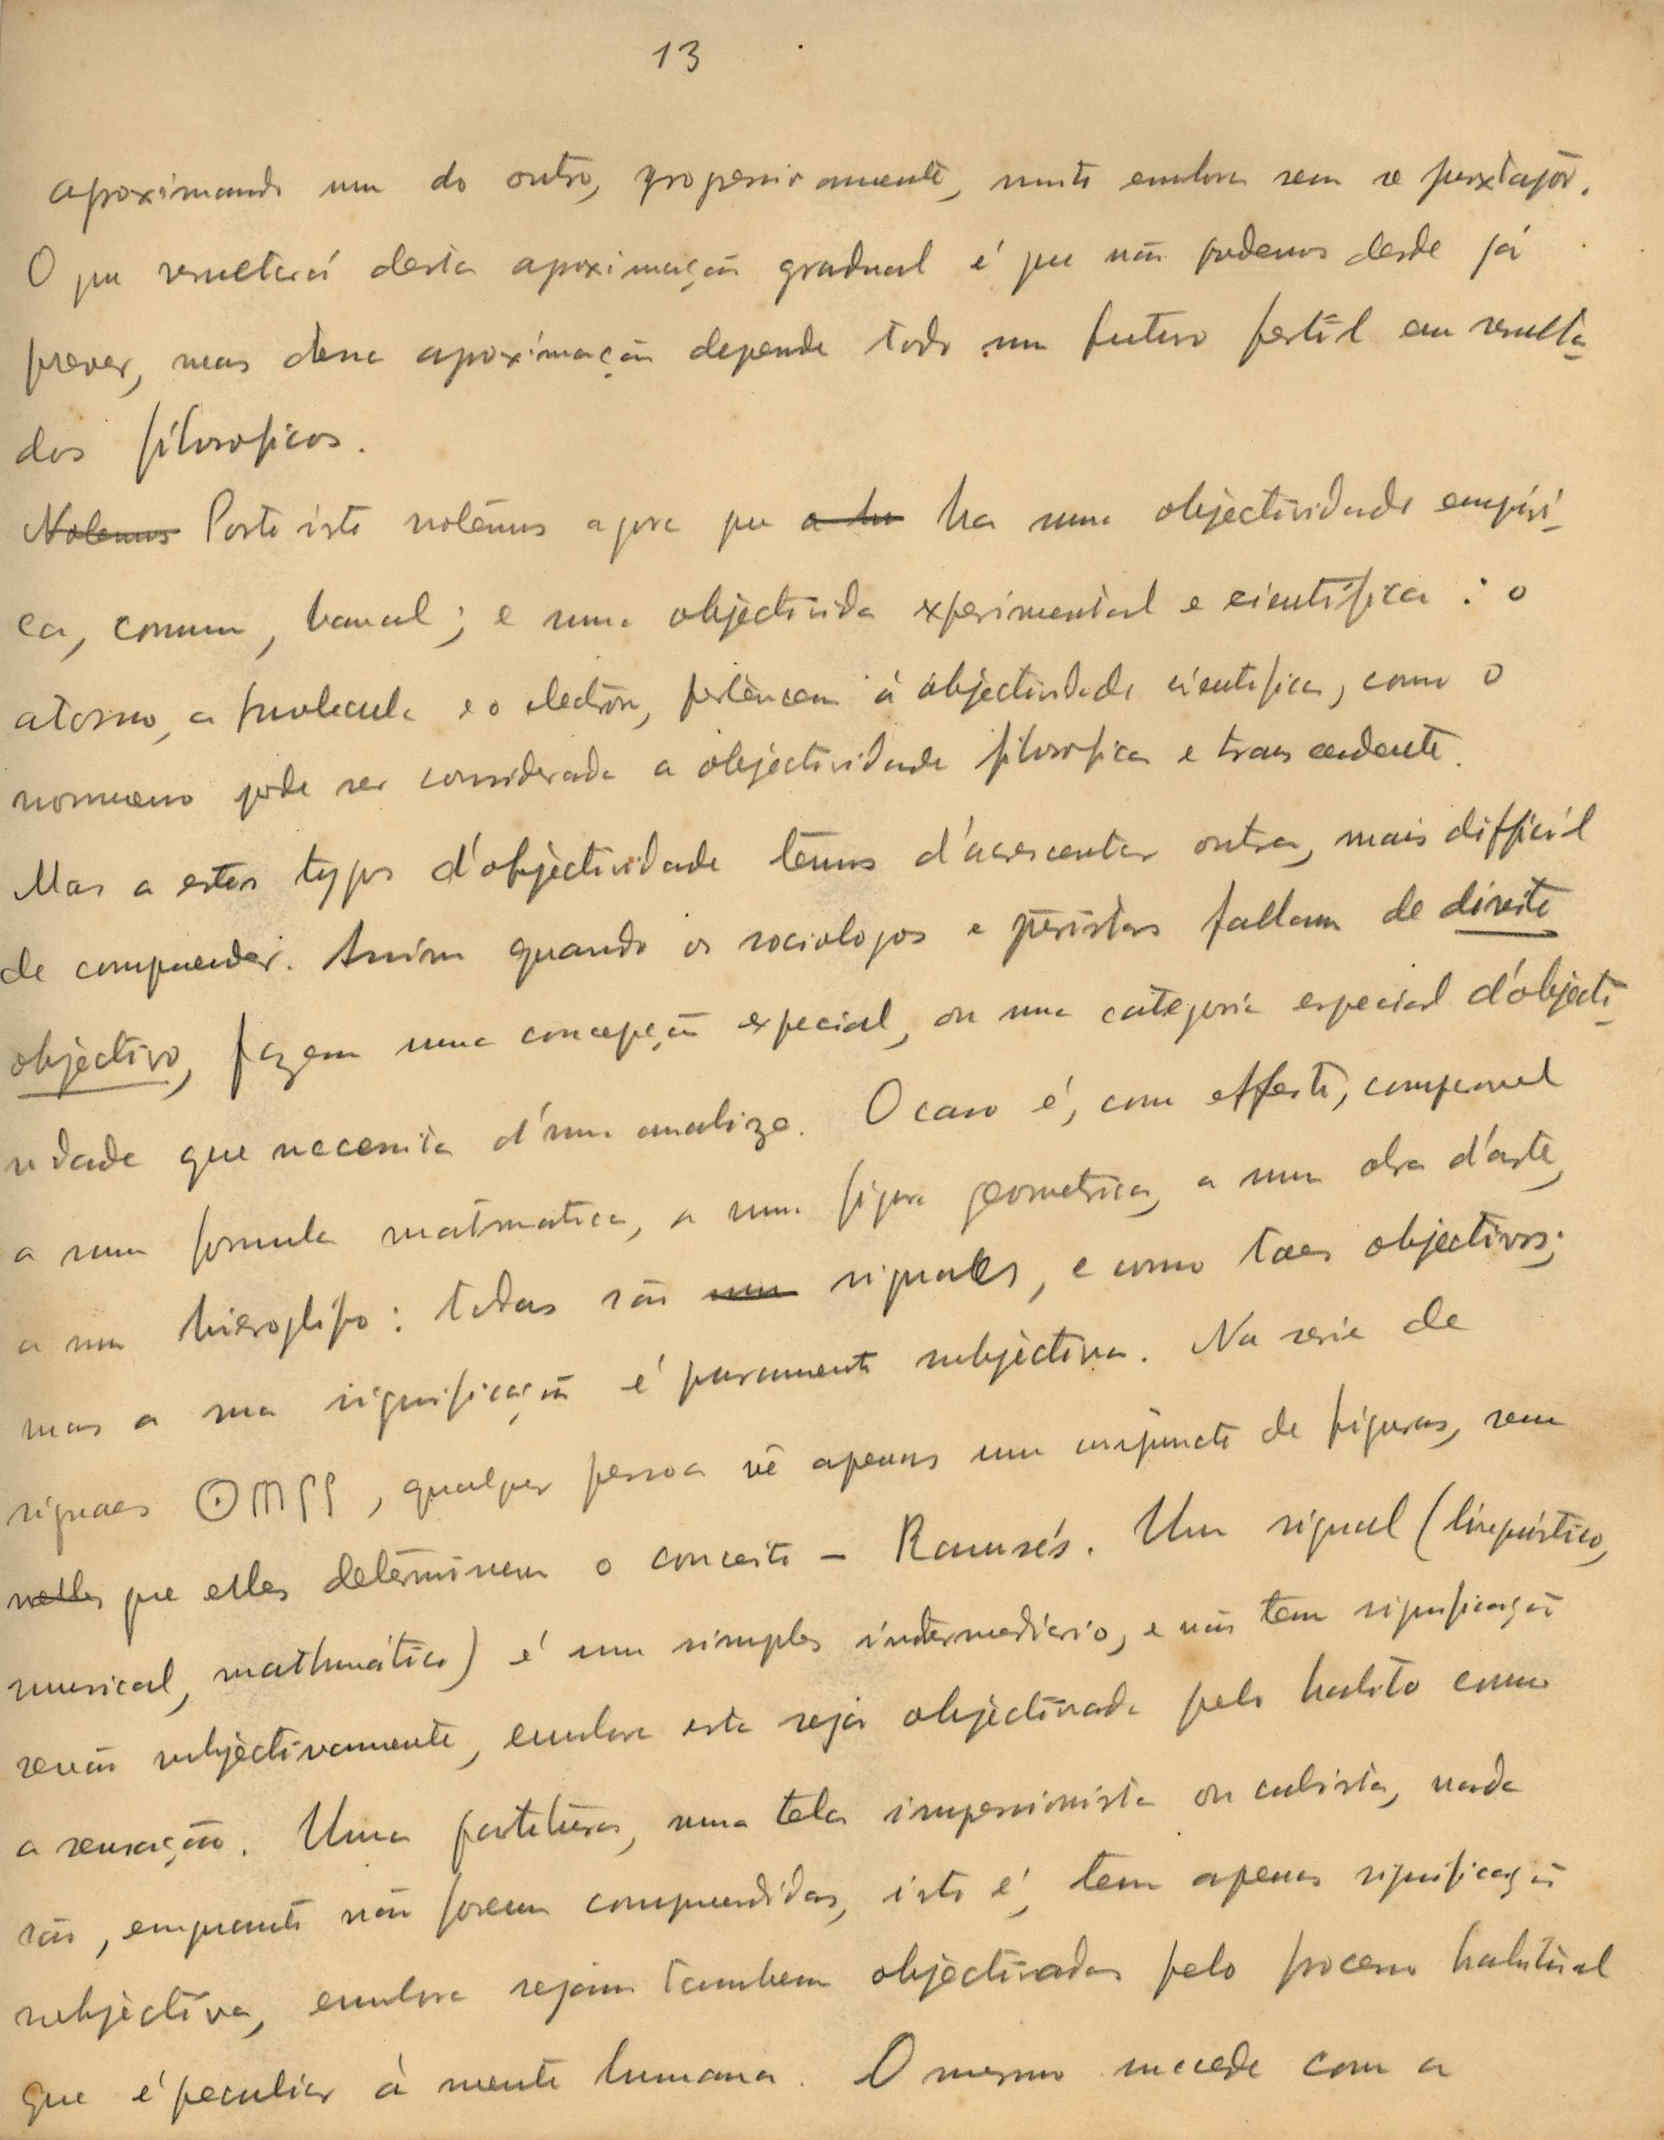 13
aproximando um do outro, progressivamente, muito embora sem se juxtapôr.
O que resultará desta aproximação gradual é que não podemos desde já
prever, mas dessa aproximação depende todo um futuro fertil em resulta-
dos filosoficos.
Notemos Posto isto notêmos agora que a ha uma objectividade empiri-
ca, comum, banal; e uma objectivida experimental e cientifica: o
atomo, a molecula e o electron, pertencem á objectividade cientifica, como o
noumeno pode ser considerada a objectividade filosofica e transcendente.
Mas a estes typos d'objectividade temos d'acrescentar outra, mais difficil
de compreender. Assim quando os sociologos e juristas fallam de direito
objectivo, fazem uma concepção especial, ou uma categoria especial d'objecti-
vidade que necessita d'uma analize. O caso é, com effeito, comparavel
a uma formula matmatica, a uma figura geometrica, a uma obra d'arte,
a um hieroglifo: todas são um signaes, e como taes objectivos;
mas a sua significação é puramente subjectiva. Na serie de
signaes ⊙, qualquer pessoa vê apenas um conjuncto de figuras, sem
que elles determinem o conceito – Ramsés. Um signal (linguistico,
musical, mathmático) é um simples intermediario, e não tem significação
senão subjectivamente, embora esta seja objectivada pelo habito como
a sensação. Uma partitura, uma tela impressionista ou cubista, nada
são, emquanto não forem comprendidas, isto é, tem apenas significação
subjectiva, embora sejam tambem objectivadas pelo processo habitual
que é peculiar á mente humana. O mesmo succede com a